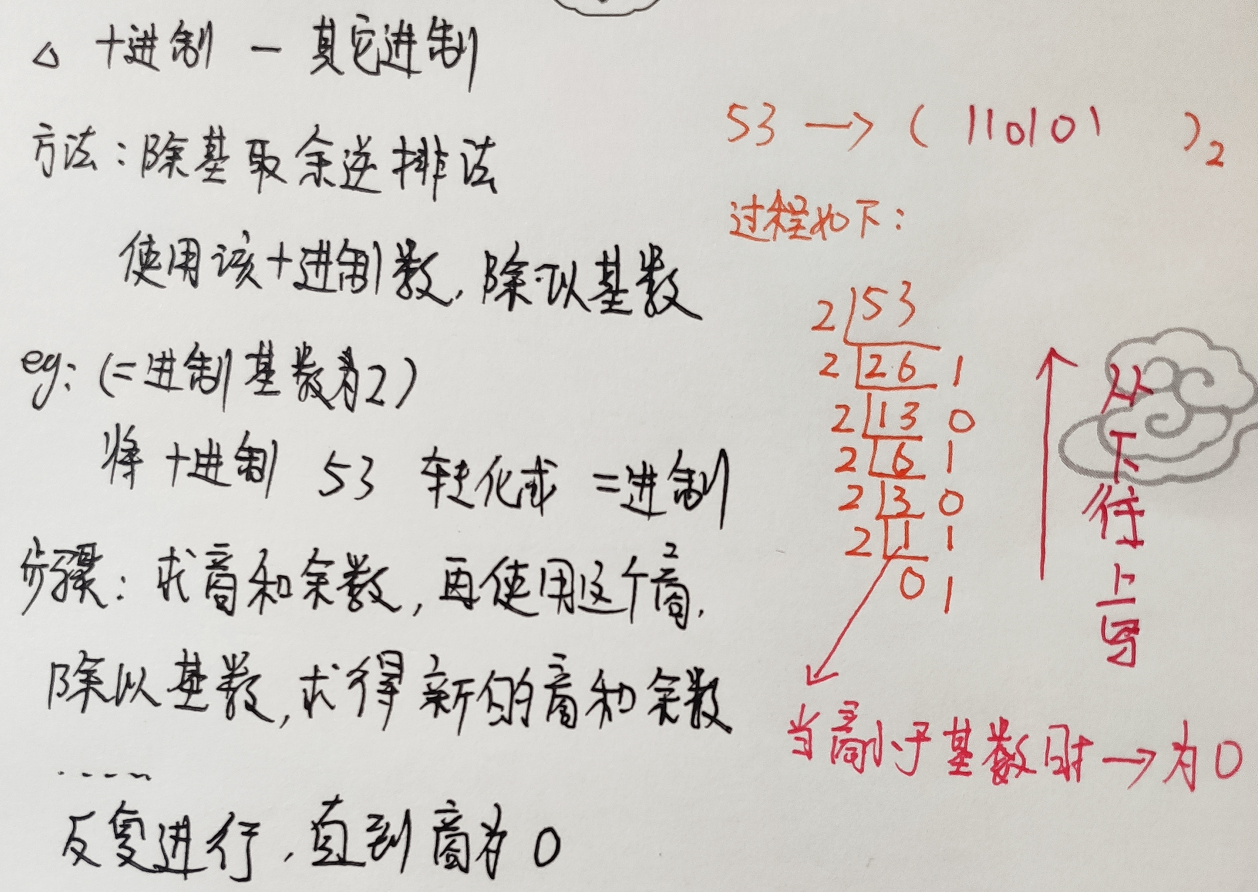 △ 十进制 — 其它进制
方法：除基取余逆排法
使用该十进制数，除以基数
eg: (二进制基数为2)
将十进制 53 转化成 二进制
步骤：求商和余数，再使用这个商，
除以基数，求得新的商和余数
......
反复进行，直到商为0
53 → ( 110101 )2
过程如下：
2 53
2 26 1
2 13 0
2 6 1
2 3 0
2 1 1
0 1
从下往上写
当商小于基数时→为0